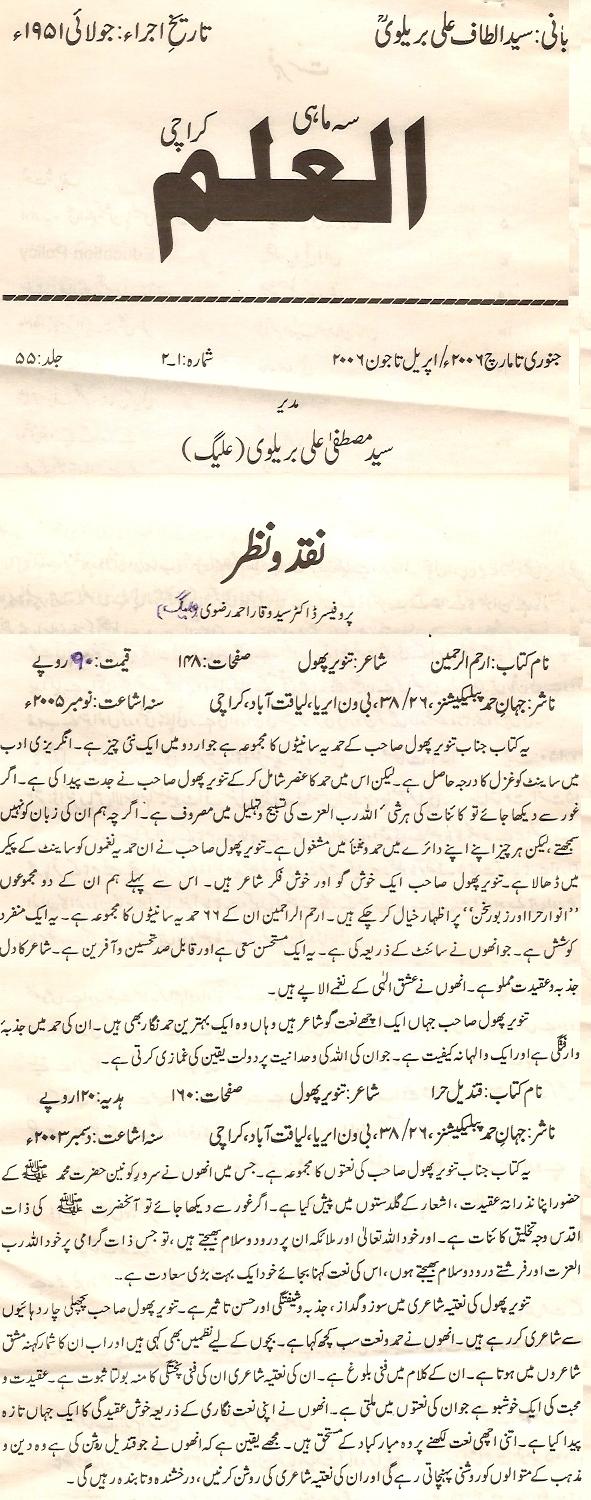 بانی: سید الطاف علی بریلویؒ
تاریخ اجراء: جولائی ۱۹۵۱ء
سہ ماہی
العلم
کراچی
جنوری تا مارچ ۲۰۰۶ء/اپریل تا جون ۲۰۰۶
شمارہ: ۱۔۲
جلد: ۵۵
مدیر
سید مصطفیٰ علی بریلوی (علیگ)
نقد و نظر
پروفیسر ڈاکٹر سید وقار احمد رضوی (علیگ)
نام کتاب: ارحم الرحمین شاعر: تنویر پھول صفحات: ۱۴۸ قیمت: ۹۰ روپے
ناشر: جہانِ حمد پبلیکیشنز، ۳۸/۲۶، بی ون ایریا، لیاقت آباد، کراچی سنہ اشاعت: نومبر ۲۰۰۵ء
یہ کتاب جناب تنویر پھول صاحب کے حمدیہ سانیٹوں کا مجموعہ ہے جو اردو میں ایک نئی چیز ہے۔ انگریزی ادب
میں سانیٹ کو غزل کا درجہ حاصل ہے۔ لیکن اس میں حمد کا عنصر شامل کر کے تنویر پھول صاحب نے جدت پیدا کی ہے۔ اگر
غور سے دیکھا جائے تو کائنات کی ہر شئی اللہ رب العزت کی تسبیح و تہلیل میں مصروف ہے۔ اگر چہ ہم ان کی زبان کو نہیں
سمجھتے، لیکن ہر چیز اپنے اپنے دائرے میں حمد و ثنا میں مشغول ہے۔ تنویر پھول صاحب نے ان حمدیہ نغموں کو سانیٹ کے پیکر
میں ڈھالا ہے۔ تنویر پھول صاحب ایک خوش گو اور خوش فکر شاعر ہیں۔ اس سے پہلے ہم ان کے دو مجموعوں
”انوار حرا اور زبور سخن“ پر اظہار خیال کر چکے ہیں۔ ارحم الراحمین ان کے ۶۶ حمدیہ سانیٹوں کا مجموعہ ہے۔ یہ ایک منفرد
کوشش ہے۔ جو انھوں نے سائٹ کے ذریعہ کی ہے۔ یہ ایک مستحسن سعی ہے اور قابل صد تحسین و آفرین ہے۔ شاعر کا دل
جذبہ و عقیدت مملو ہے۔ انھوں نے عشق الٰہی کے نغمے الاپے ہیں۔
تنویر پھول صاحب جہاں ایک اچھے نعت گو شاعر ہیں وہاں وہ ایک بہترین حمد نگار بھی ہیں۔ ان کی حمد میں جذبۂ
وارفتگی ہے اور ایک والہانہ کیفیت ہے۔ جو ان کی اللہ کی وحدانیت پر دولت یقین کی غمازی کرتی ہے۔
نام کتاب: قندیل حرا شاعر: تنویر پھول صفحات: ۱۶۰ ہدیہ: ۱۲۰ روپے
ناشر: جہانِ حمد پبلیکیشنز، ۳۸/۲۶، بی ون ایریا، لیاقت آباد، کراچی سنہ اشاعت: دسمبر ۲۰۰۳ء
یہ کتاب جناب تنویر پھول صاحب کی نعتوں کا مجموعہ ہے۔ جس میں انھوں نے سرور کونین حضرت محمد ﷺ کے
حضور اپنا نذرانۂ عقیدت، اشعار کے گلدستوں میں پیش کیا ہے۔ اگر غور سے دیکھا جائے تو آنحضرت ﷺ کی ذات
اقدس وجہ تخلیق کائنات ہے۔ اور خود اللہ تعالیٰ اور ملائکہ ان پر درود و سلام بھیجتے ہیں، تو جس ذات گرامی پر خود اللہ رب
العزت اور فرشتے درود و سلام بھیجتے ہوں، اس کی نعت کہنا بجائے خود ایک بہت بڑی سعادت ہے۔
تنویر پھول کی نعتیہ شاعری میں سوز و گداز، جذبہ و شیفتگی اور حسن تاثیر ہے۔ تنویر پھول صاحب پچھلی چار دہائیوں
سے شاعری کر رہے ہیں۔ انھوں نے حمد و نعت سب کچھ کہا ہے۔ بچوں کے لیے نظمیں بھی کہی ہیں اور اب ان کا شمار کہنہ مشق
شاعروں میں ہوتا ہے۔ ان کے کلام میں فنی بلوغ ہے۔ ان کی نعتیہ شاعری ان کی فنی پختگی کا منہ بولتا ثبوت ہے۔ عقیدت و
محبت کی ایک خوشبو ہے جو ان کی نعتوں میں ملتی ہے۔ انھوں نے اپنی نعت نگاری کے ذریعہ خوش عقیدگی کا ایک جہاں تازہ
پیدا کیا ہے۔ اتنی اچھی نعت لکھنے پر وہ مبارکباد کے مستحق ہیں۔ مجھے یقین ہے کہ انھوں نے جو قندیل روشن کی ہے وہ دین و
مذہب کے متوالوں کو روشنی پہنچاتی رہے گی اور ان کی نعتیہ شاعری کی روشن کرنیں، درخشندہ و تابندہ رہیں گی۔